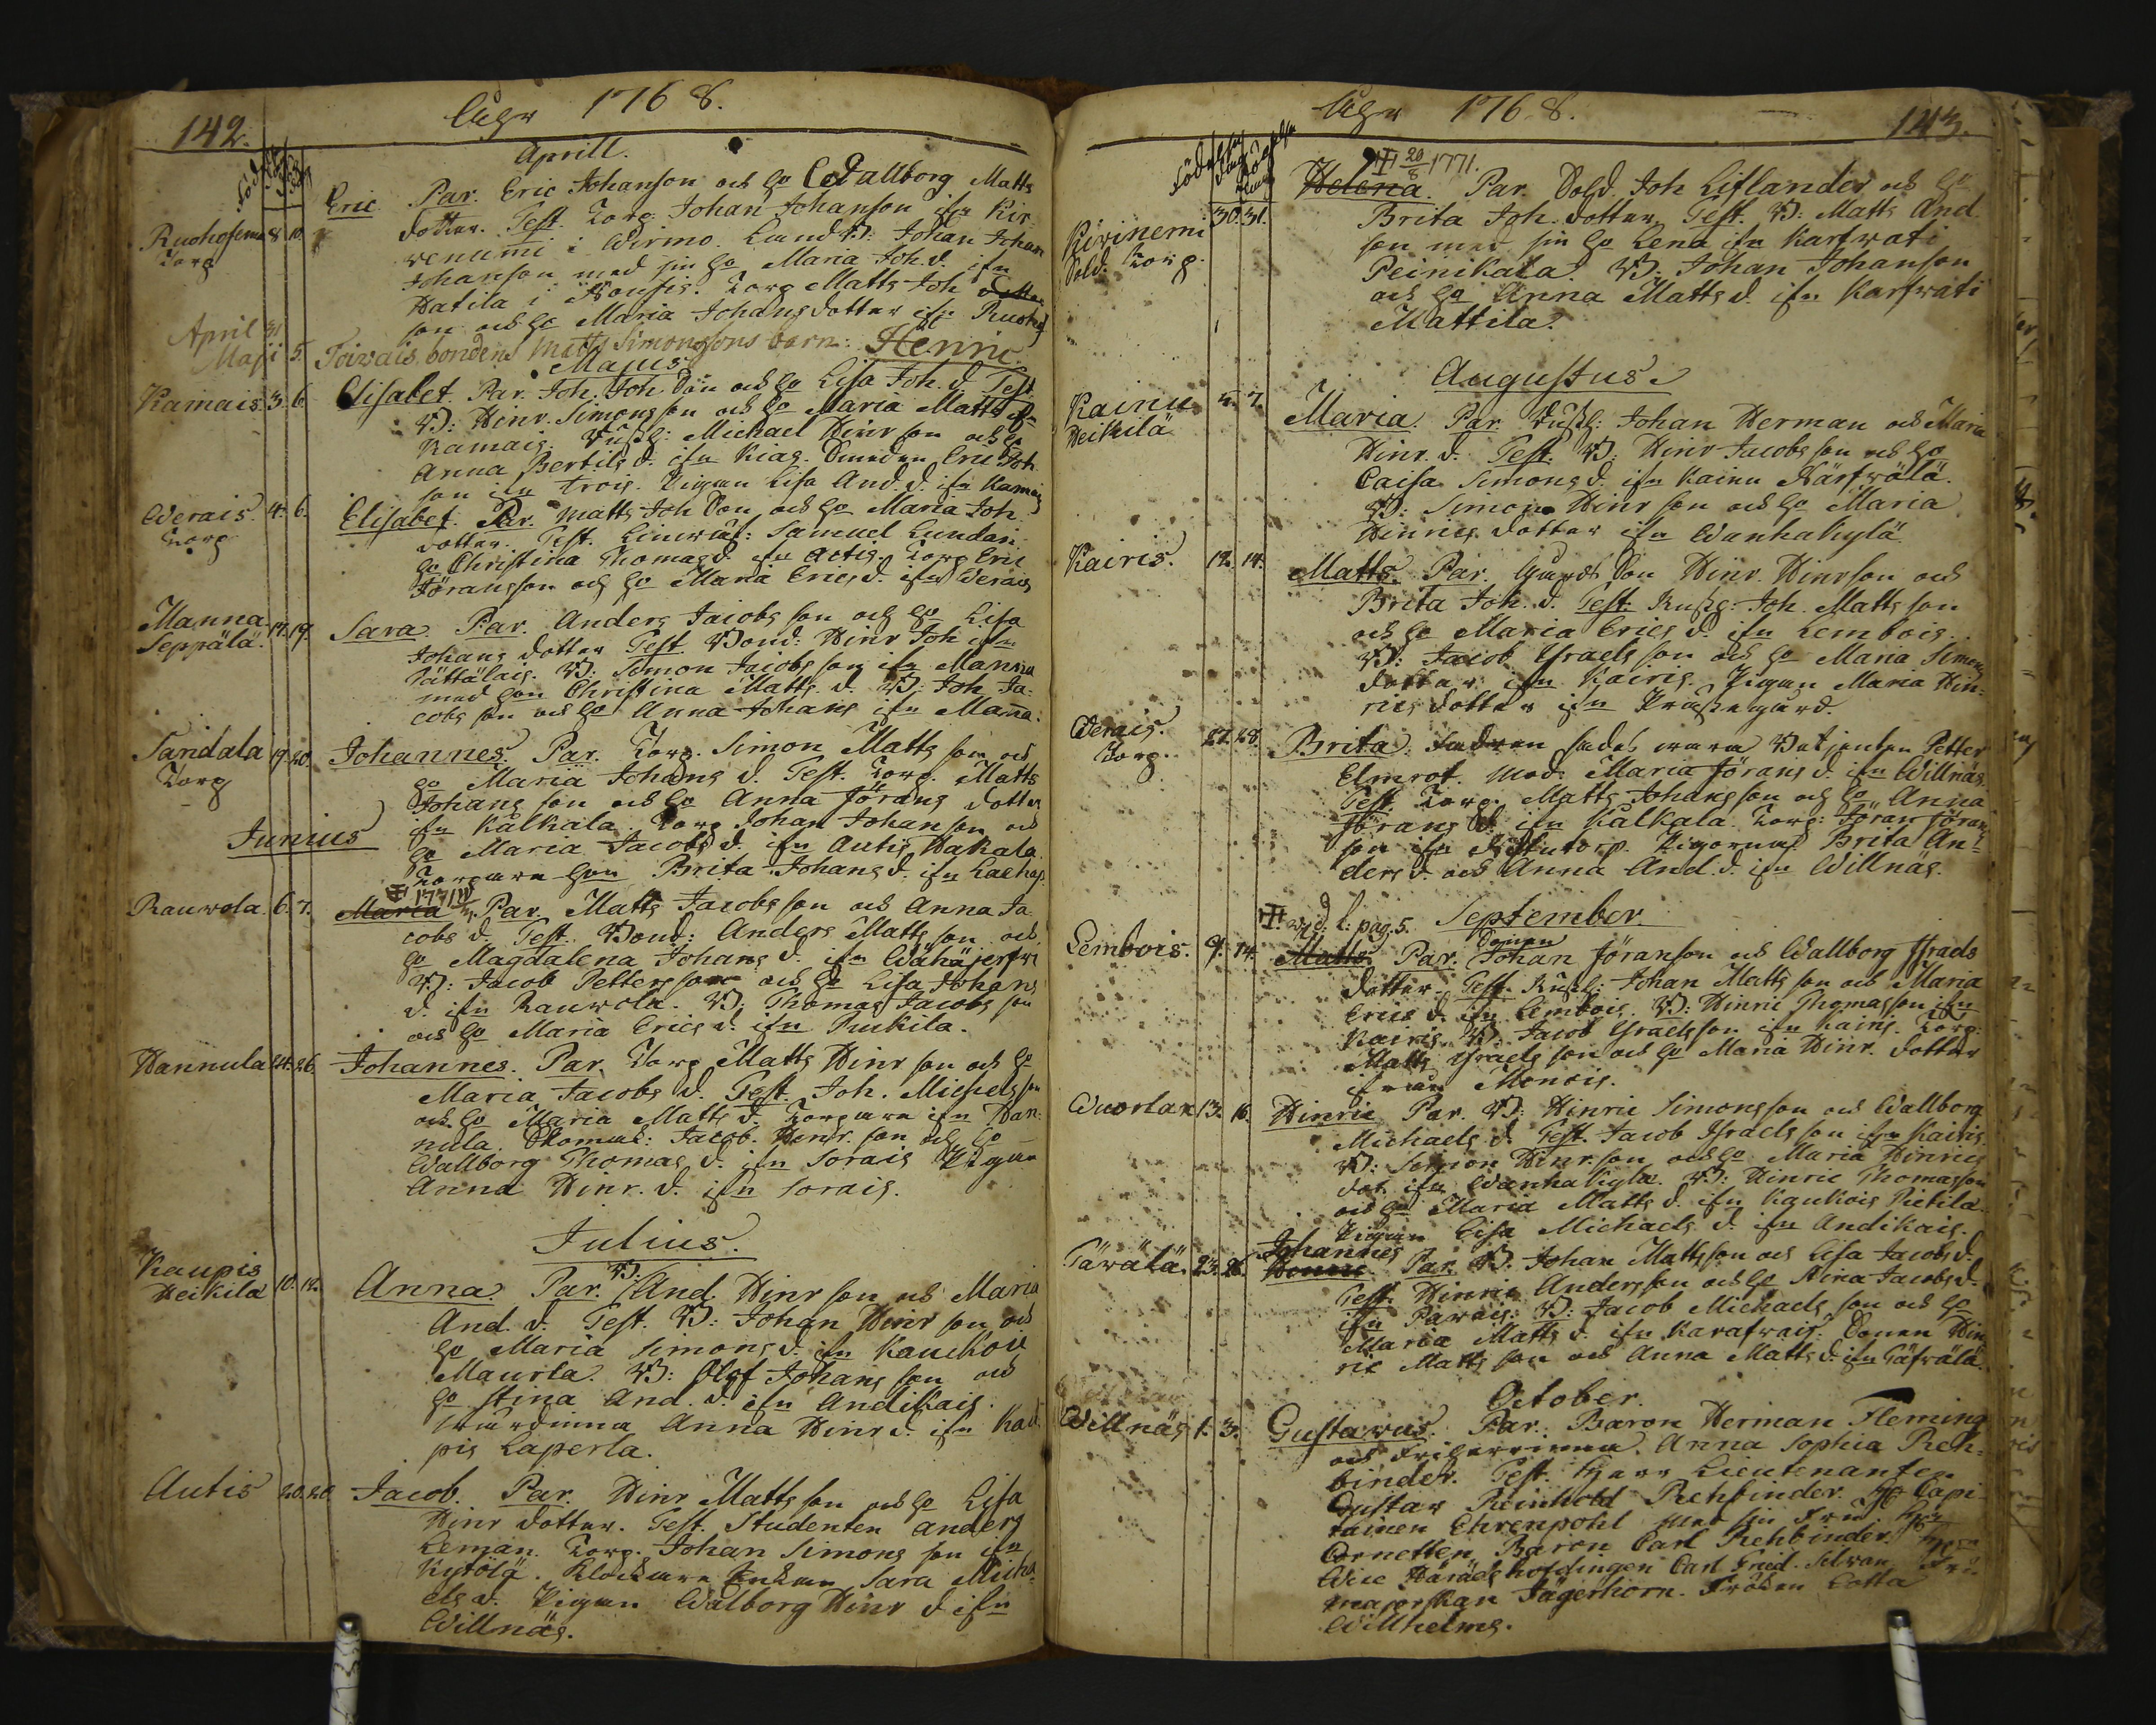 142.
1768.
Aprill.
Eric Par. Eric Johanson och H:o Wallborg Matts
dotter. Test. Torp. Johan Johanson ifn Kir
wenumi i Wirmo. Johan Johan
Johanson med sin H:o Maria Joh. d. ifn
Hatila i Torp Matts Joh
son och H:o Maria Johans dotter ifn
Ruohosima 8. 10.
Torp
April 31
Maji 5. Toivais bonden Matts Simonssons barn: Henric
Majus
Kamais 3. 6. Elisabet. Par. Joh. Joh. Son och H:o Lisa Joh. d. Test.
B: Hinr. Simonsson och H:o Maria Matts d ifn
Kamais. Michael Hinrson och H:o
Anna Bertils d. ifn Kias. Eric Joh
son ifn Trois. Pigan Lisa And. d. ifn Kamais
Werais. 4. 6. Elisabet. Par. Matts Joh Son och H:o Maria Joh.
Torp
dotter. Test. Samuel Lundan
H:o Christina Thomas d. ifn Actis. Torp Eric
Göransson och H:o Maria Erics d. ifn Werais
Manna
Seppälä. 17. 19. Sara. Par. Anders Jacobs son och H:o Lisa
Johans dotter Test. Bond: Hinr Joh ifn
B: Simon Jacobs son ifn Manna
med H:on Christina Matts d. B: Joh. Ja-
cobs son och H:o Anna Johans ifn Manna.
Sandala 19. 20. Johannes. Par. Torp. Simon Matts son och
Torp
H:o Maria Johans d. Test. Torp. Matts
Johans son och H:o Anna Jörans dotter
ifn Kalkala. Torp Johan Johanson och
Junius
H:o Maria Jacobs d. ifn Autis Hakala.
Torpare H:on Brita Johans d. ifn
1771
Rauvola. 6. 7. Maria Par. Matts Jacobsson och Anna Ja
cobs d. Test. Bond: Anders Matts son och
H:o Magdalena Johans d. ifn Wähäjerfwi
B: Jacob Petters son och H:o Lisa Johans
d. ifn Rauwola. B: Thomas Jacobs son
och H:o Maria Erics d. ifn Ruokila.
Hannula 24. 26. Johannes. Par. Torp Matts Hinr son och H:o
Maria Jacobs d. Test. Joh. Michels son
och H:o Maria Matts d. Torpare ifn Han-
nula. Jacob. Hinr. son och H:o
Wallborg Thomas d. ifn Sorais Pigan
Anna Hinr. d. ifn Sorais.
Julius.
Kaupis
Heikila 10. 12. Anna Par. B: And. Hinr son och Maria
And. d. Test. B: Johan Hinr son och
H:o Maria Simons d. ifn Kauckois
Maurla. B: Olof Johans son och
H:o Stina And. d. ifn Andikais.
Anna Hinr d. ifn Kau
pis Laperla.
Autis 20. 20 Jacob. Par. Hinr Matts son och H:o Lisa
Hinr dotter. Test. Studenten Anders
Leman. Torp. Johan Simons son ifn
Kytölä. Klockare Enkan Sara Micha-
els d. Pigan Walborg Hinr d ifn
Willnäs.
1768.
143.
20/8 1771.
Kirinemi 30. 31. Helena. Par. Sold. Joh Liflander och H:o
Sold. Torp.
Brita Joh. dotter. Test. B: Matts And.
son med sin H:o Lena ifn Karfwati
Peinikala. B. Johan Johanson
och H:o Anna Matts d. ifn Karfwati
Mattila.
Augustus.
Kainu
Heikilä 5. 7. Maria. Par. Johan Herman och Maria
Hinr. d. Test. B: Hinr Jacobs son och H:o
Caisa Simons d. ifn Kainu Närfwälä.
B: Simon Hinr son och H:o Maria
Hinrics dotter ifn Wanhakylä.
Kairis. 12. 14. Matts. Par. Hinr. Hinrson och
Brita Joh. d. Test. Joh. Matts son
och H:o Maria Erics d. ifn Lembois.
B: Jacob Israels son och H:o Maria Simons
dotter ifn Kairis. Pigan Maria Hin-
rics dotter ifn Prästegård.
Werais.
Torp. 27. 28. Brita: fadren sades wara Betjenten Petter
Elmrot. Mod: Maria Jörans d. ifn Willnäs.
Test. Torp. Matts Johansson och H:o Anna
Jörans d. ifn Kalkala. Torp: Jöran Jörans
son ifn Pigorna Brita An-
ders d. och Anna And. d. ifn Willnäs.
vid. l: pag. 5. September.
Lembois. 9. 14. Matts. Par. Johan Jöranson och Wallborg Israels
dotter. Test. Johan Mattsson och Maria
Erics d. ifn Lembois. B: Hinric Thomasson ifn
Kairis. B. Jacob Israelsson ifn Kairis. Torp:
Matts Israels son och H:o Maria Hinr. dotter
ifrån Monois.
Wuorlax 13. 16. Hinric Par. B: Hinric Simonsson och Wallborg
Michaels d. Test. Jacob Israels son ifn Kairis.
B: Simon Hinr. son och H:o Maria Hinrics
dot. ifn Wanhakyla. B: Hinric Thomasson
och H:o Maria Matts d. ifn Kaukois Pietila.
Pigan Lisa Michaels d. ifn Andikais.
Johannes
Tärälä. 23. 26. Par. B: Johan Mattsson och Lisa Jacobs d.
Test. Hinric Andersson och H:o Stina Jacobs d.
ifn Parvais: B: Jacob Michaels son och H:o
Maria Matts d. ifn Karafwais: Hin
ric Matts son och Anna Matts d. ifn Täfrälä.
October.
Willnäs 1. 3. Gustavus. Par. Baron Herman Fleming
och Friherrinnan. Anna Sophia Reh-
binder. Test. Herr Lieutenanten
Gustav Reinhold Rehbinder. H:r Capi
tainen Ehrenpohl med sin Fru
Cornetten Baron Carl Rehbinder.
Wice Häradshöfdingen Carl Fried. Fru
majorskan Jägerhorn. Fröken Lotta
Willhelms.